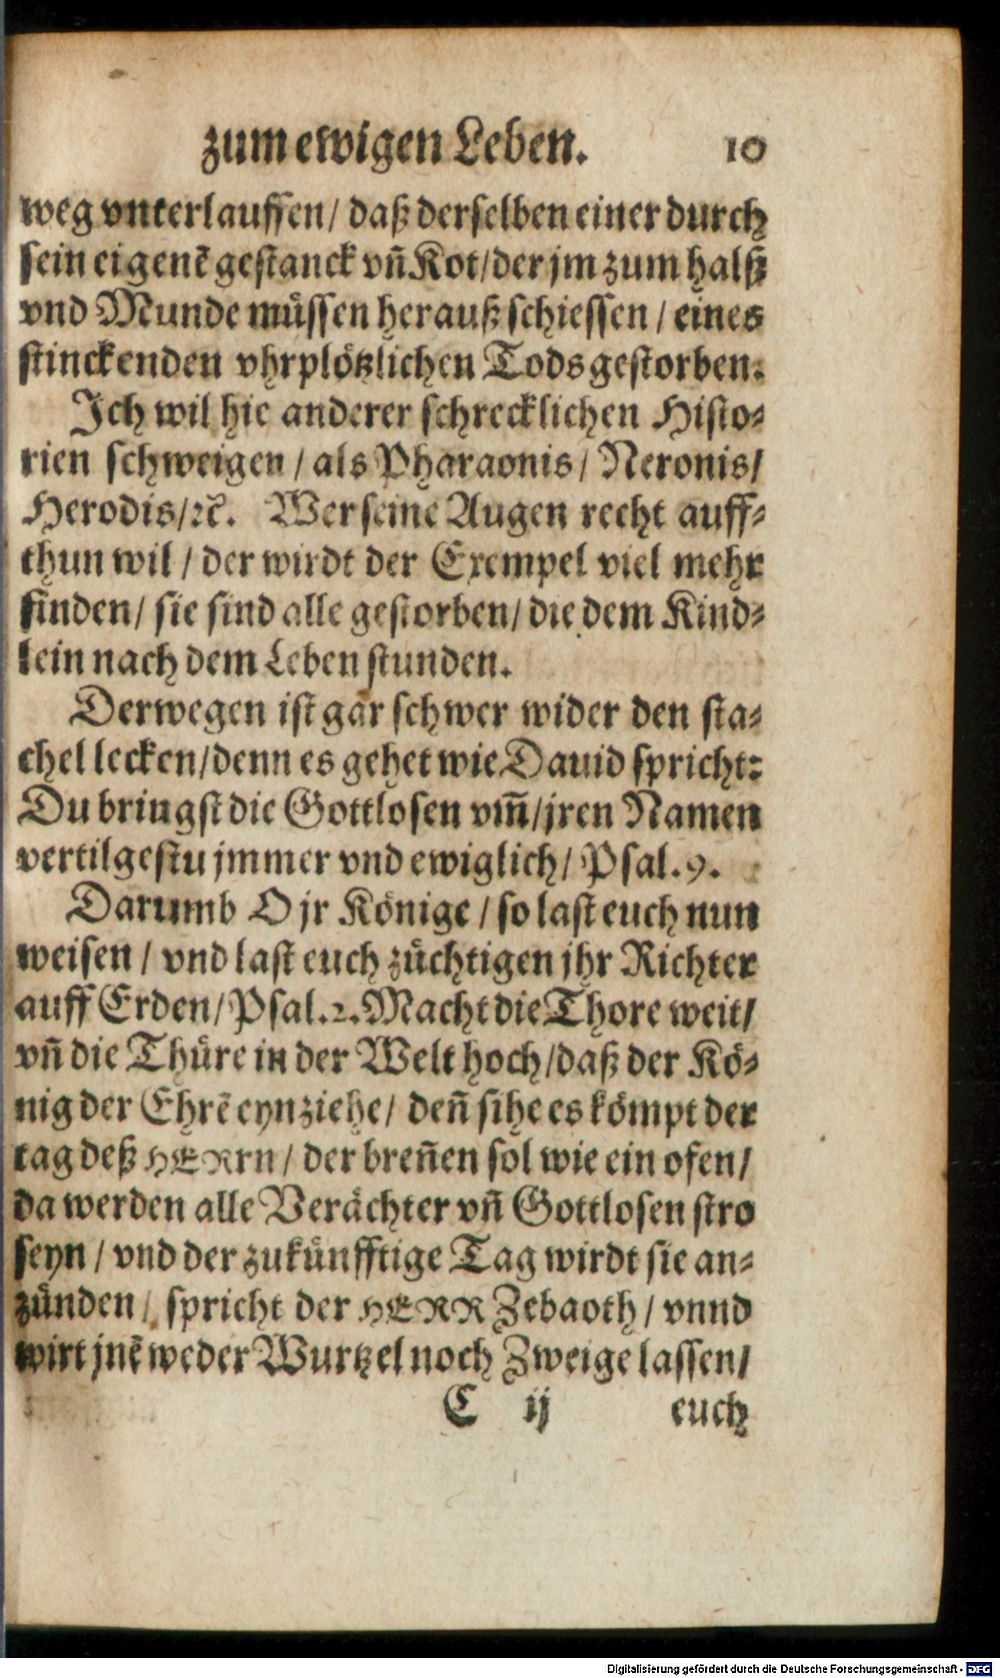 zum ewigen Leben. 10
weg vnterlauffen / daß derselben einer durch
sein eigenẽ gestanck vñ Kot / der jm zum halß
vnd Munde müssen herauß schiessen / eines
stinckenden vhrplötzlichen Tods gestorben.
Ich wil hie anderer schrecklichen Histo-
rien schweigen / als Pharaonis / Neronis /
Herodis / ꝛc. Wer seine Augen recht auff-
thun wil / der wirdt der Exempel viel mehr
finden / sie sind alle gestorben / die dem Kind-
lein nach dem Leben stunden.
Derwegen ist gar schwer wider den sta-
chel lecken / denn es gehet wie Dauid spricht:
Du bringst die Gottlosen vm̃ / jren Namen
vertilgestu jmmer vnd ewiglich / Psal. 9.
Darumb O jr Könige / so last euch nun
weisen / vnd last euch züchtigen jhr Richter
auff Erden / Psal. 2. Macht die Thore weit /
vñ die Thüre in der Welt hoch / daß der Kö-
nig der Ehrẽ eynziehe / deñ sihe es kömpt der
tag deß HERrn / der breñen sol wie ein ofen /
da werden alle Verächter vñ Gottlosen stro
seyn / vnd der zukünfftige Tag wirdt sie an-
zünden / spricht der HERR Zebaoth / vnnd
wirt jnẽ weder Wurtzel noch Zweige lassen /
C ij euch
Digitalisierung gefördert durch die Deutsche Forschungsgemeinschaft - DFG